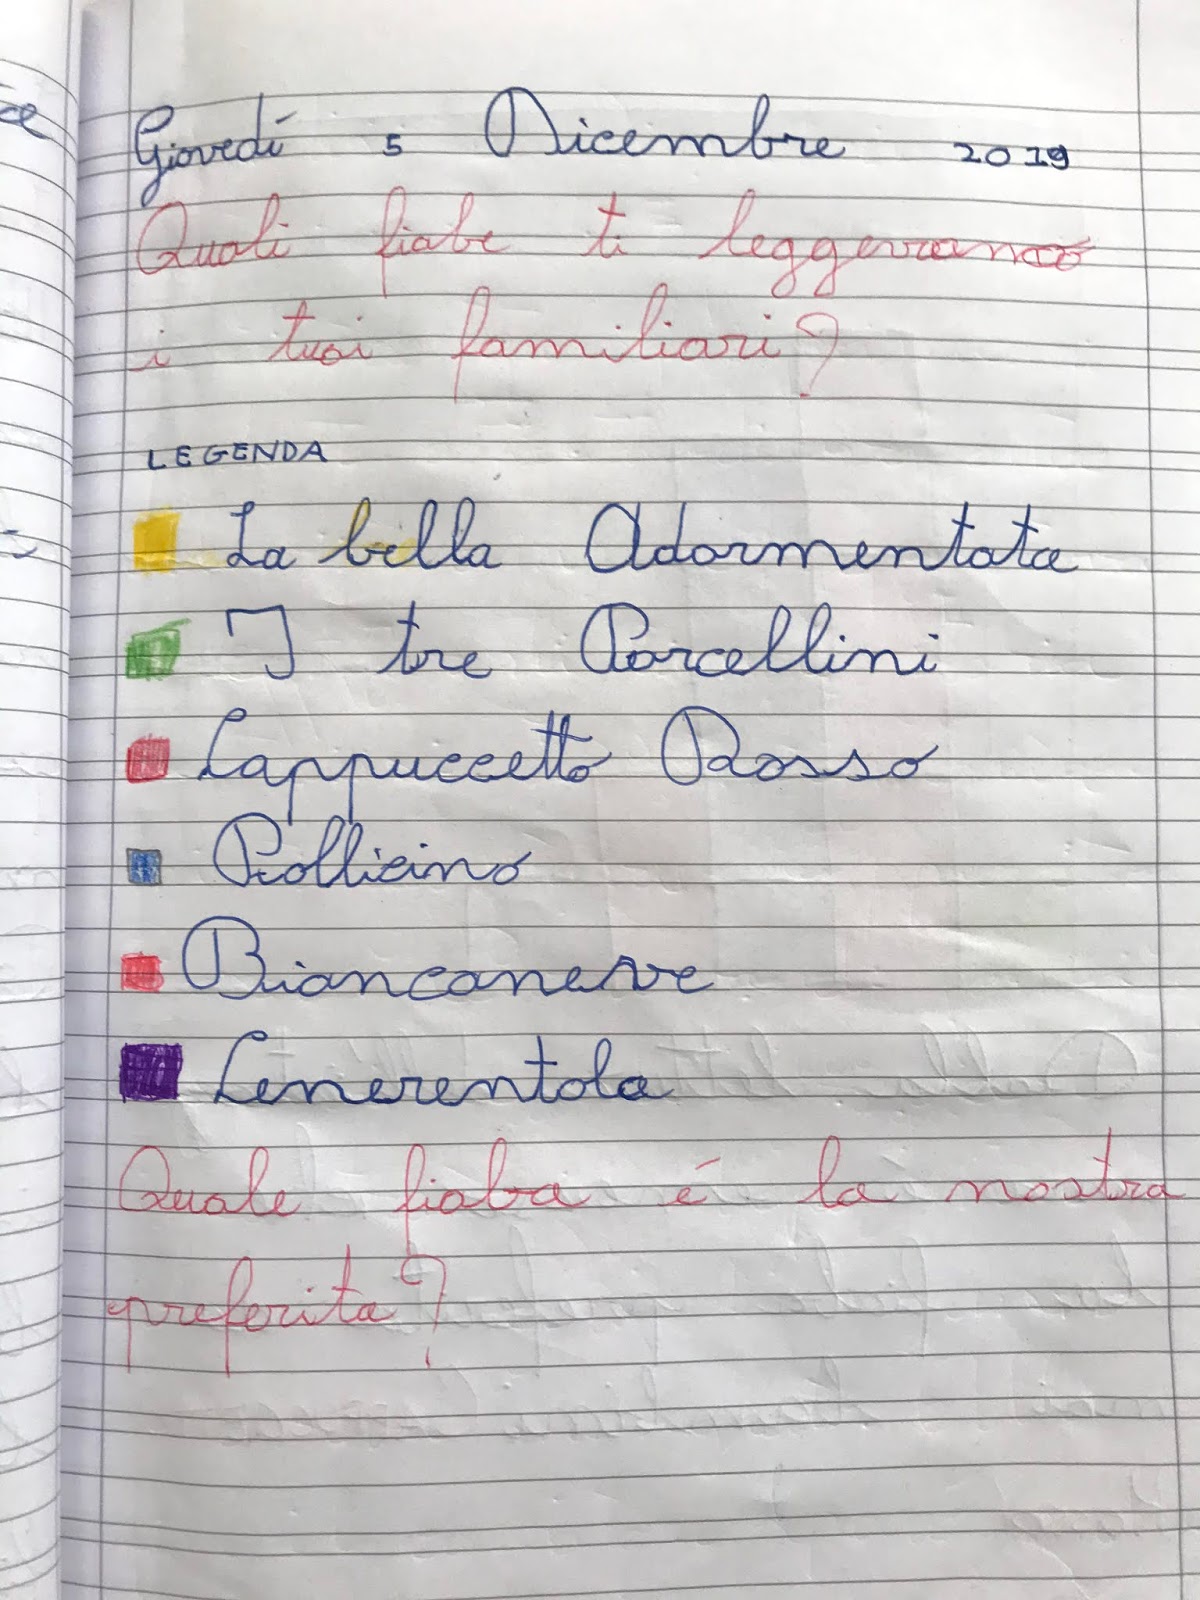 Giovedí 5 Dicembre 2019
Quali fiabe ti leggevano
i tuoi familiari?
LEGENDA
La bella Adormentata
I tre Porcellini
Cappuccetto Rosso
Pollicino
Biancaneve
Cenerentola
Quale fiaba é la nostra
preferita?